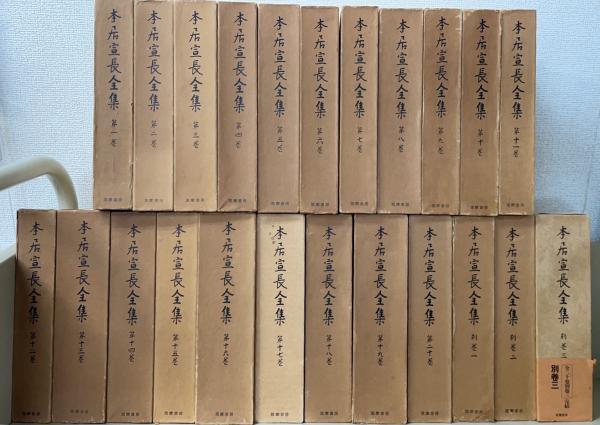 本居宣長全集 第一巻 筑摩書房
本居宣長全集 第二巻 筑摩書房
本居宣長全集 第三巻 筑摩書房
本居宣長全集 第四巻 筑摩書房
本居宣長全集 第五巻 筑摩書房
本居宣長全集 第六巻 筑摩書房
本居宣長全集 第七巻 筑摩書房
本居宣長全集 第八巻 筑摩書房
本居宣長全集 第九巻 筑摩書房
本居宣長全集 第十巻 筑摩書房
本居宣長全集 第十一巻 筑摩書房
本居宣長全集 第十二巻 筑摩書房
本居宣長全集 第十三巻 筑摩書房
本居宣長全集 第十四巻 筑摩書房
本居宣長全集 第十五巻 筑摩書房
本居宣長全集 第十六巻 筑摩書房
本居宣長全集 第十七巻 筑摩書房
本居宣長全集 第十八巻 筑摩書房
本居宣長全集 第十九巻 筑摩書房
本居宣長全集 第二十巻 筑摩書房
本居宣長全集 別巻一 筑摩書房
本居宣長全集 別巻二 筑摩書房
本居宣長全集 別巻三
別巻三
筑摩書房